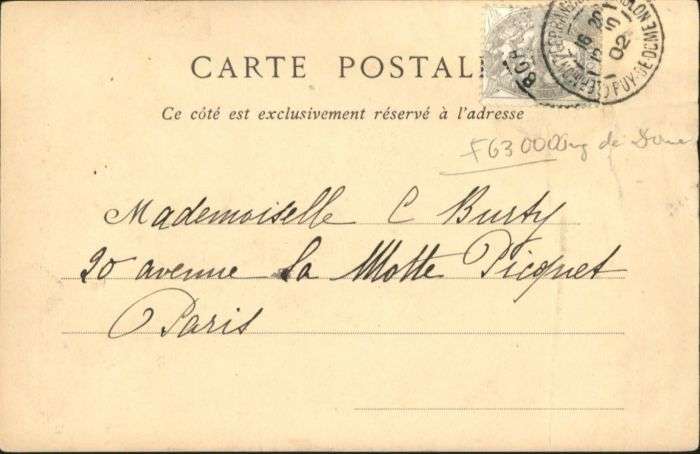 CARTE POSTALE
Ce côté est exclusivement réservé à l'adresse
16 20
5
02
PUY-DE-DOME
F63000 Puy de Dome
Mademoiselle C Burty
20 avenue La Motte Picquet
Paris